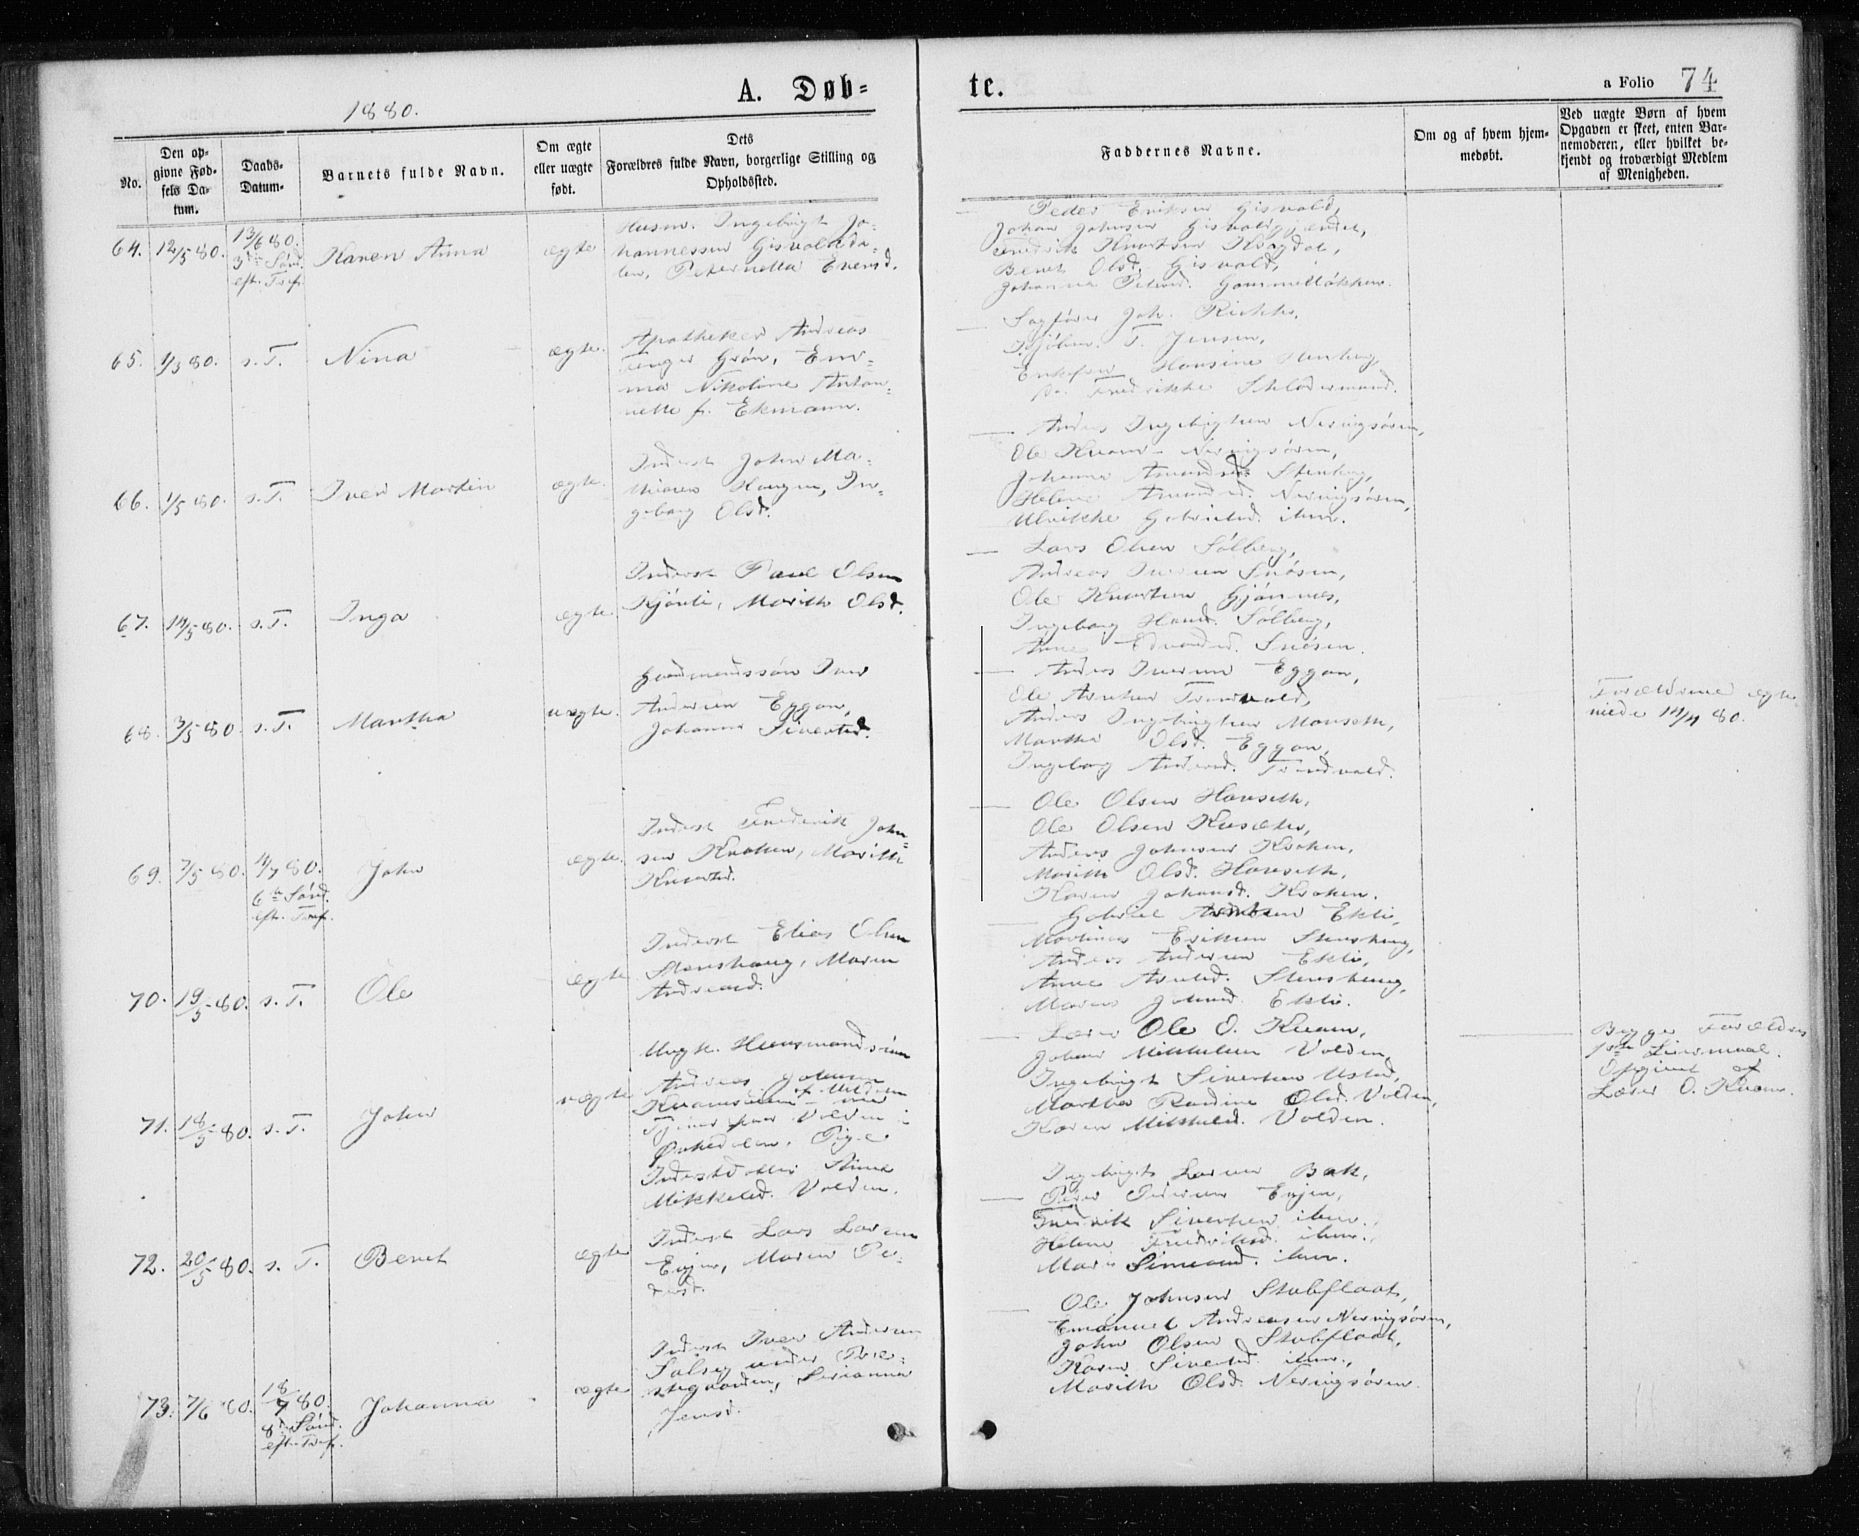 1880.
A. Døb=
te.
a Folio 74
No.
Den op-
givne Fød-
sels Da-
tum.
Daabs-
Datum.
Barnets fulde Navn.
Om ægte
eller uægte
født.
Dets
Forældres fulde Navn, borgerlige Stilling og
Opholdssted.
Faddernes Navne.
Om og af hvem hjem-
medøbt.
Ved uægte Børn af hvem
Opgaven er skeet, enten Bar-
nemoderen, eller hvilket be-
kjendt og troværdigt Medlem
af Menigheden.
64. 12/5 80. 13/6 80. Karen Anna ægte
3die Sønd.
eft. Tref.
Husm. Ingebrigt Jo-
hannessen Gisvoldda-
len, Peternella Evensd.
Peder Eriksen Gisvold,
Johan Johnsen
Fredrik Knutsen
Beret Olsd. Gisvold,
Johanna Pedersd. Gammelløkken.
65. 1/3 80. s.T. Nina ægte.
Apotheker Andreas
Grøn, Em-
ma Nikoline Anton-
nette f. Ekmann.
Sagfører Joh. Richter,
Kjøbm. T. Jensen,
Enkefru Hansine
Fredrikke
66. 1/5 80. s.T. Iver Martin ægte.
Inderst John
Haugen, In-
geborg Olsd.
Anders Ingebrigtsen Neringsøren,
Ole Kvam - Neringsøren,
Johanna Amundsd. Stenberg,
Helene Amundsd. Neringsøren,
Ulrikke Gabrielsd. ibm.
67. 14/5 80. s.T. Inga ægte.
Inderst Paul Olsen
Kjønli, Marith Olsd.
Lars Olsen Sølberg,
Andreas Iversen Snøsen,
Ole Knutsen Gjønnes,
Ingeborg Hansd. Sølberg,
Anne Edvardsd. Snøsen.
68. 3/5 80. s.T. Martha uægte.
Gaardmandssøn Iver
Andersen Eggan,
Johanna Sivertsd.
Anders Iversen Eggan,
Ole Arntsen Trondvold,
Anders Ingebrigtsen Monseth,
Martha Olsd. Eggan,
Ingeborg Andersd. Trondvold.
Forældrene ægte-
viede 14/4 80.
69. 7/5 80. 4/7 80. John ægte.
6te Sønd.
eft. Tref.
Inderst Frederik John-
sen Kroken, Marith
Knutsd.
Ole Olsen Hanseth,
Ole Olsen
Anders Johnsen Kroken,
Marith Olsd. Hanseth,
Karen Johansd. Kroken.
70. 19/5 80. s.T. Ole ægte
Inderst Elias Olsen
Stenshaug, Maren
Andreasd.
Gabriel Arntsen Ekli,
Martinus Eriksen Stenshaug,
Anders Andersen Ekli,
Anne Arntsd. Stenshaug,
Maren Johnsd. Ekli.
71. 18/5 80. s.T. John uægte
Ungk. Huusmandssøn
Andreas Johnsen
Tjener paa Volden i
Orkedalen, Pige
Inderstdatter Anne
Mikkelsd. Volden.
Lærer Ole O. Kvam,
Johan Mikkelsen Volden,
Ingebrigt Sivertsen Ustad,
Martha Randine Olsd. Volden,
Karen Mikkelsd. Volden.
Begge Forældres
1ste Leiermaal.
Opgivet af
Lærer O. Kvam.
72. 20/5 80. s.T. Beret ægte
Inderst Lars Larsen
Evjen, Maren Pe-
dersd.
Ingebrigt Larsen Bak,
Peder Pedersen Evjen,
Fredrik Sivertsen ibm.,
Helene Fredriksd. ibm.,
Marie Simonsd. ibm.
73. 7/6 80. 18/7 80. Johanna ægte
8de Sønd.
eft. Tref.
Inderst Iver Andersen
under Præ-
stegaarden, Serianna
Jensd.
Ole Johnsen Stubflaat,
Emanuel Andreasen Neringsøren,
John Olsen Stubflaat,
Karen Sivertsd. ibm.,
Marith Olsd. Neringsøren.